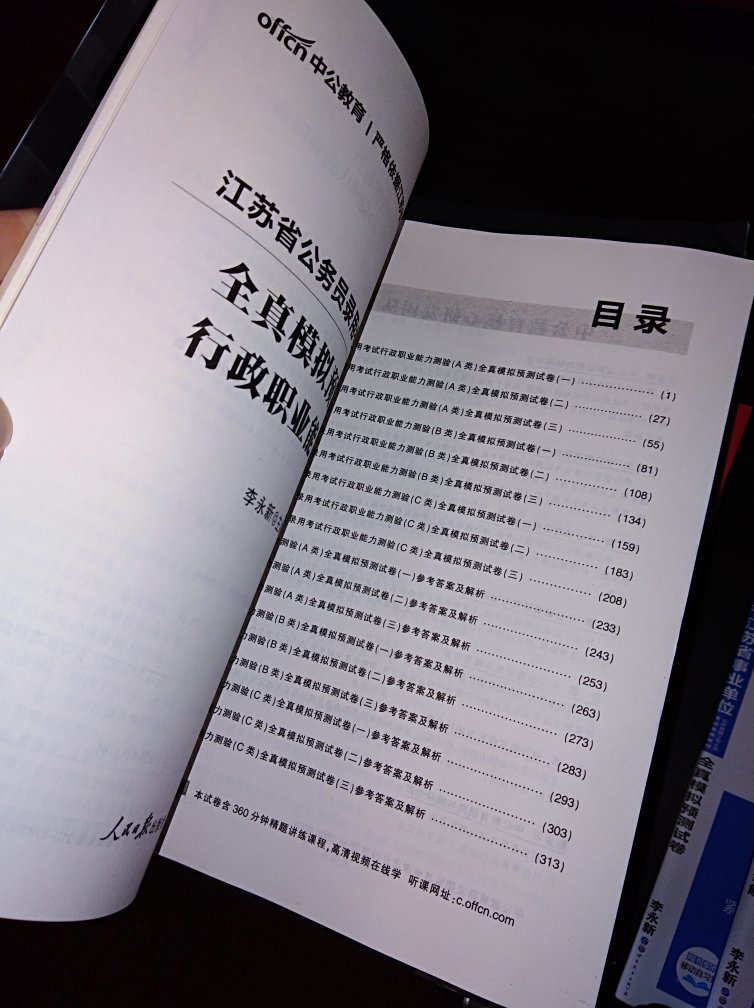 offcn中公教育 | 严格依据江苏
江苏省公务员录
全真模拟预
行政职业能
李永新◎主
人民日报出版
目录
用考试行政职业能力测验(A类)全真模拟预测试卷(一) ……………… (1)
用考试行政职业能力测验(A类)全真模拟预测试卷(二) ……………… (27)
用考试行政职业能力测验(A类)全真模拟预测试卷(三) ……………… (55)
用考试行政职业能力测验(B类)全真模拟预测试卷(一) ……………… (81)
录用考试行政职业能力测验(B类)全真模拟预测试卷(二) ……………… (108)
录用考试行政职业能力测验(B类)全真模拟预测试卷(三) ……………… (134)
录用考试行政职业能力测验(C类)全真模拟预测试卷(一) ……………… (159)
录用考试行政职业能力测验(C类)全真模拟预测试卷(二) ……………… (183)
录用考试行政职业能力测验(C类)全真模拟预测试卷(三) ……………… (208)
测验(A类)全真模拟预测试卷(一)参考答案及解析 ……………… (233)
测验(A类)全真模拟预测试卷(二)参考答案及解析 ……………… (243)
测验(A类)全真模拟预测试卷(三)参考答案及解析 ……………… (253)
力测验(B类)全真模拟预测试卷(一)参考答案及解析 ……………… (263)
力测验(B类)全真模拟预测试卷(二)参考答案及解析 ……………… (273)
力测验(B类)全真模拟预测试卷(三)参考答案及解析 ……………… (283)
力测验(C类)全真模拟预测试卷(一)参考答案及解析 ……………… (293)
力测验(C类)全真模拟预测试卷(二)参考答案及解析 ……………… (303)
力测验(C类)全真模拟预测试卷(三)参考答案及解析 ……………… (313)
本试卷含360分钟精题讲练课程,高清视频在线学 听课网址:c.offcn.com
江苏省事业单位
全真模拟预测试卷
李永新
移动自习
李永新